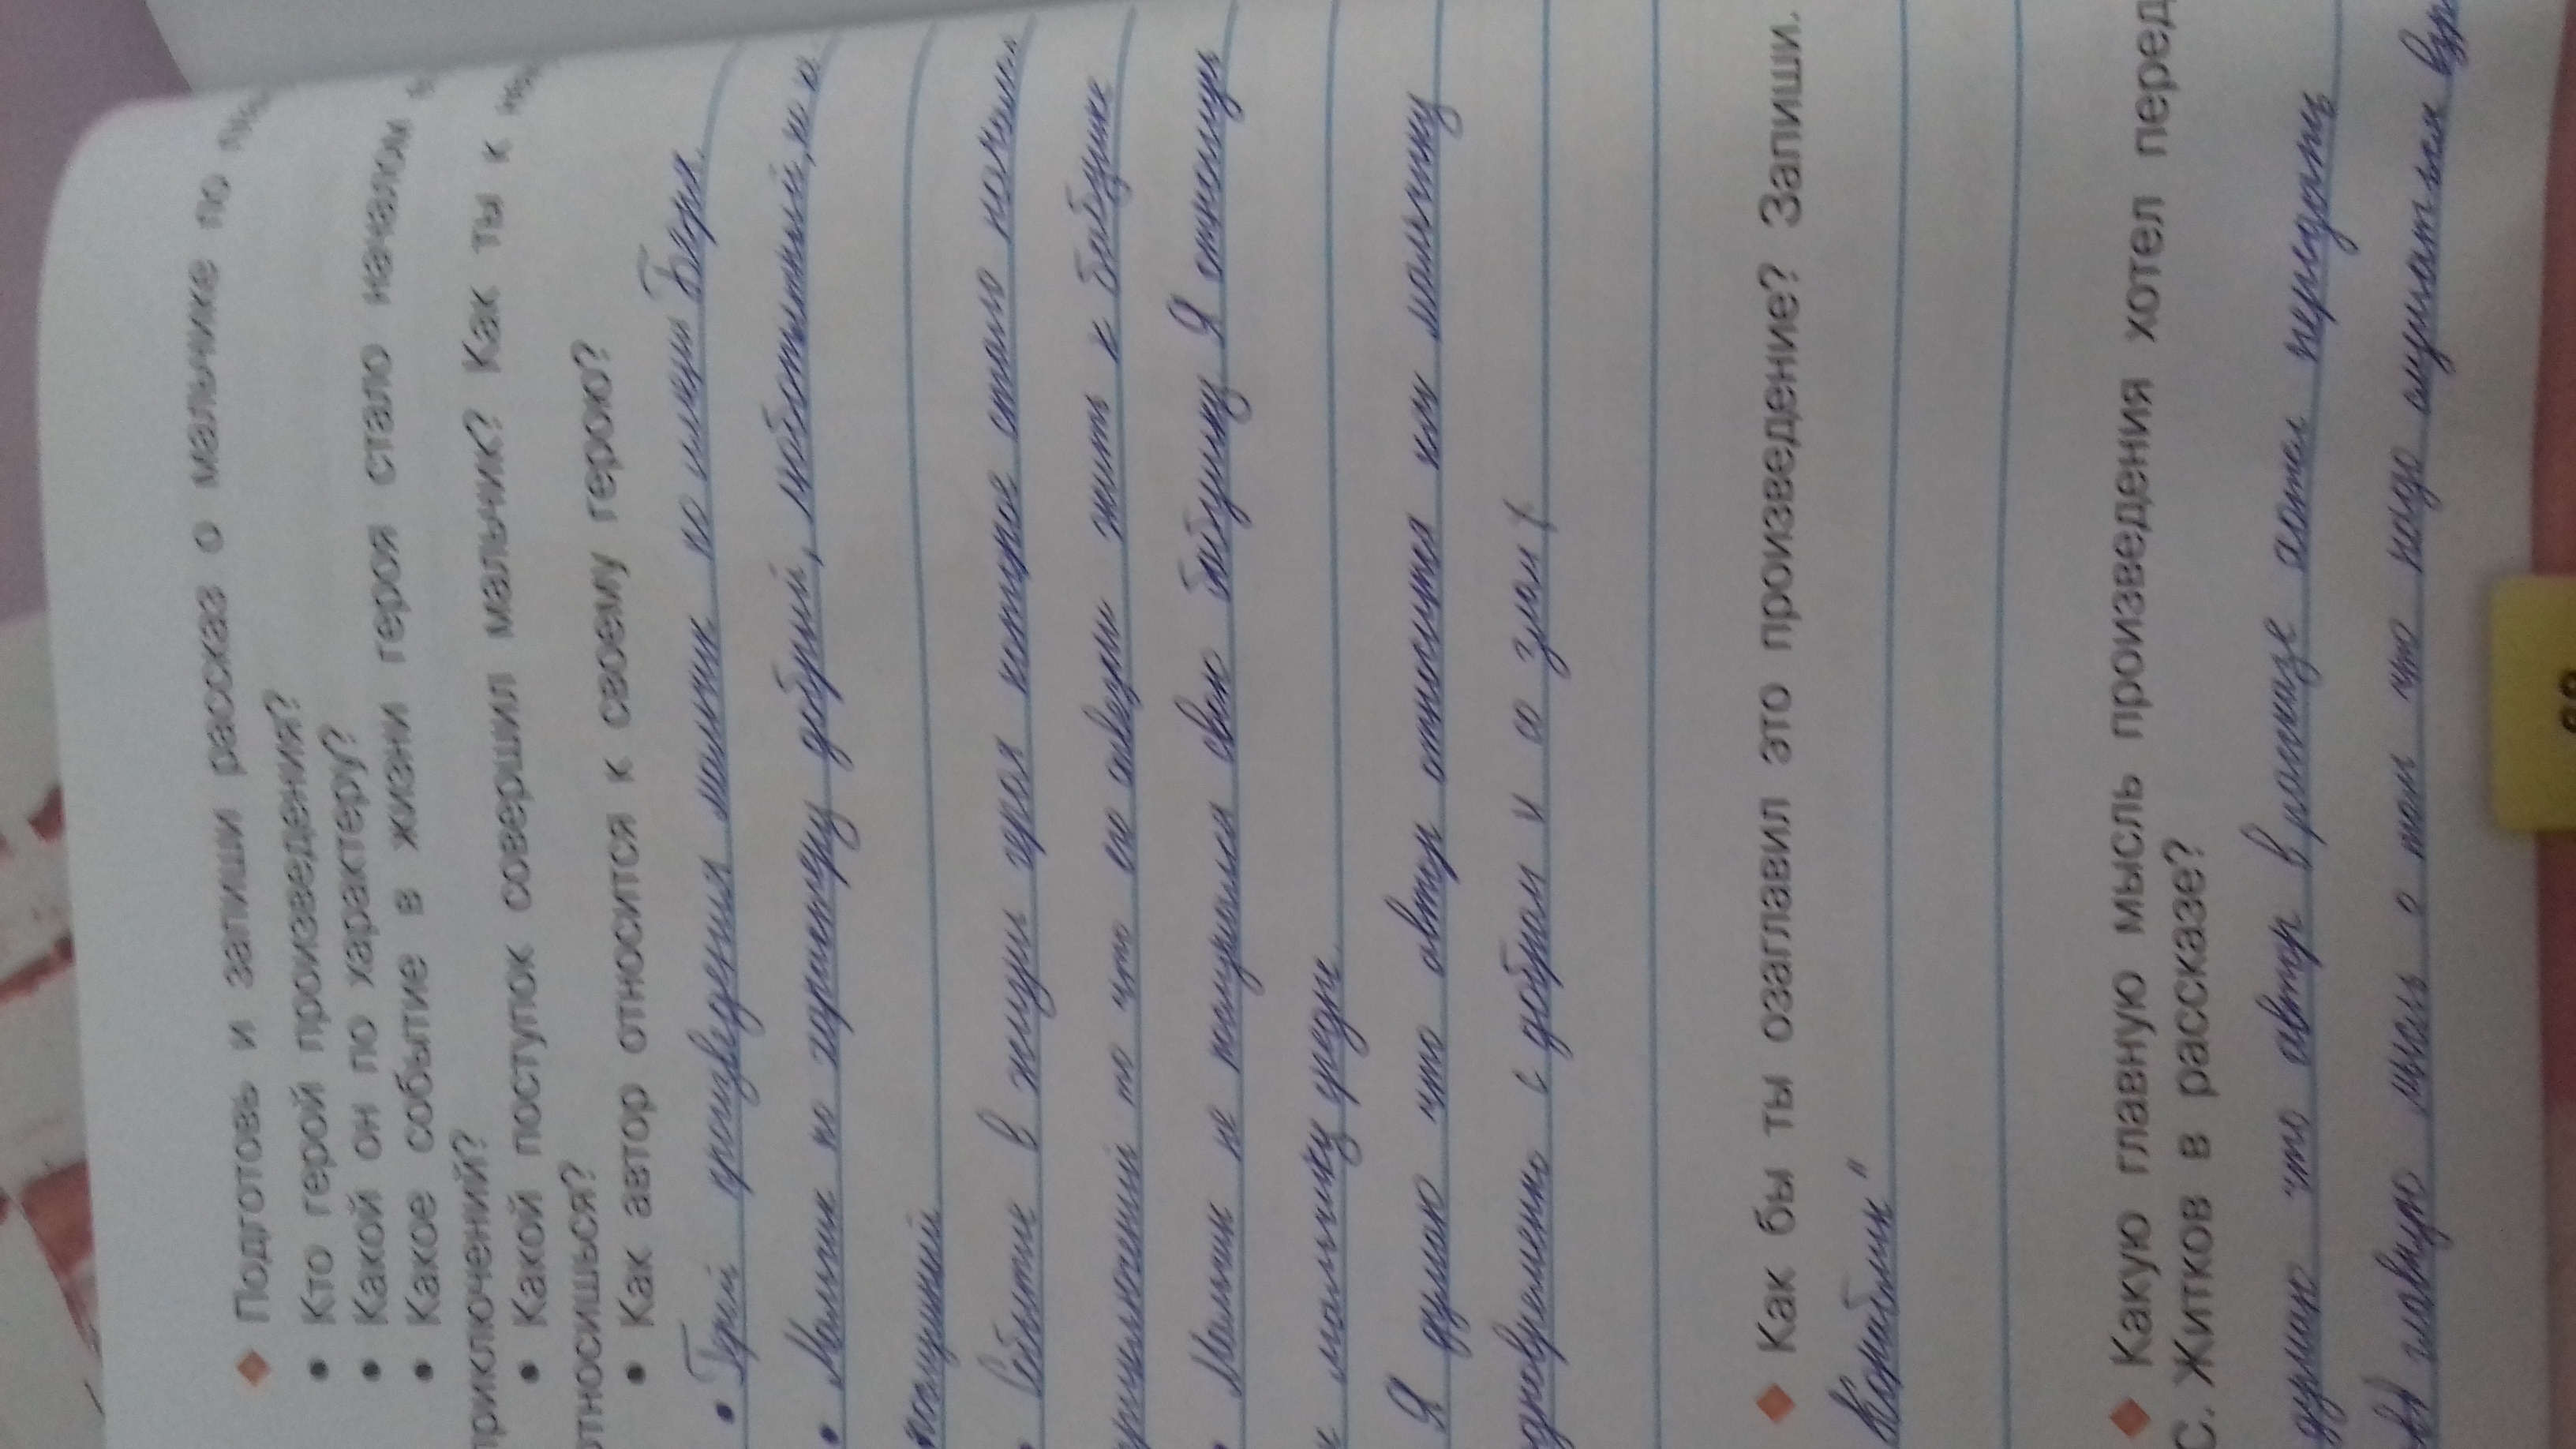 Подготовь и запиши рассказ о мальчике по
• Кто герой произведения?
• Какой он по характеру?
• Какое событие в жизни героя стало началом
приключений?
• Какой поступок совершил мальчик? Как ты к
относишься?
• Как автор относится к своему герою?
• Герой произведения мальчик по имени Боря.
• Мальчик по характеру добрый, любопытный, но и
Событие в жизни героя которое стало
то что его отвезли жить к бабушке
Мальчик не послушался свою бабушку Я отношусь
к мальчику
Я думаю что автор относится к мальчику
одновременно с добром и со злом
Как бы ты озаглавил это произведение? Запиши.
Кораблик"
Какую главную мысль произведения хотел перед
С. Житков в рассказе?
думаю что автор в рассказе хотел передать
главную мысль о том что надо слушаться взр